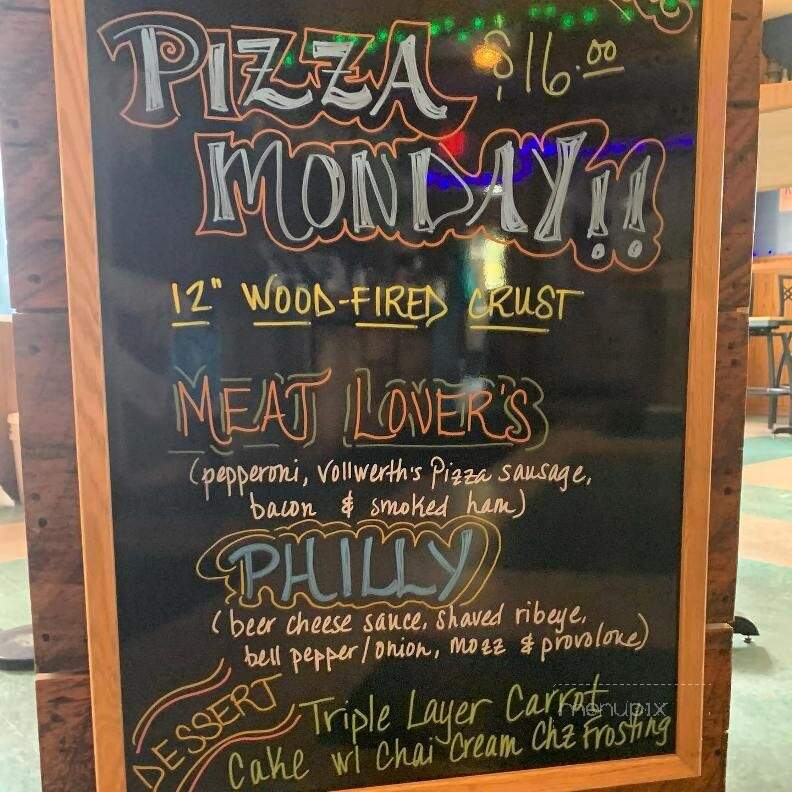 PIZZA $16.00
MONDAY!!
12" WOOD-FIRED CRUST
MEAT LOVER'S
(pepperoni, Vollwerth's Pizza sausage,
bacon & smoked ham)
PHILLY
(beer cheese sauce, shaved ribeye,
bell pepper/onion, mozz & provolone)
DESSERT Triple Layer Carrot
Cake w/ Chai Cream Chz Frosting
menupix